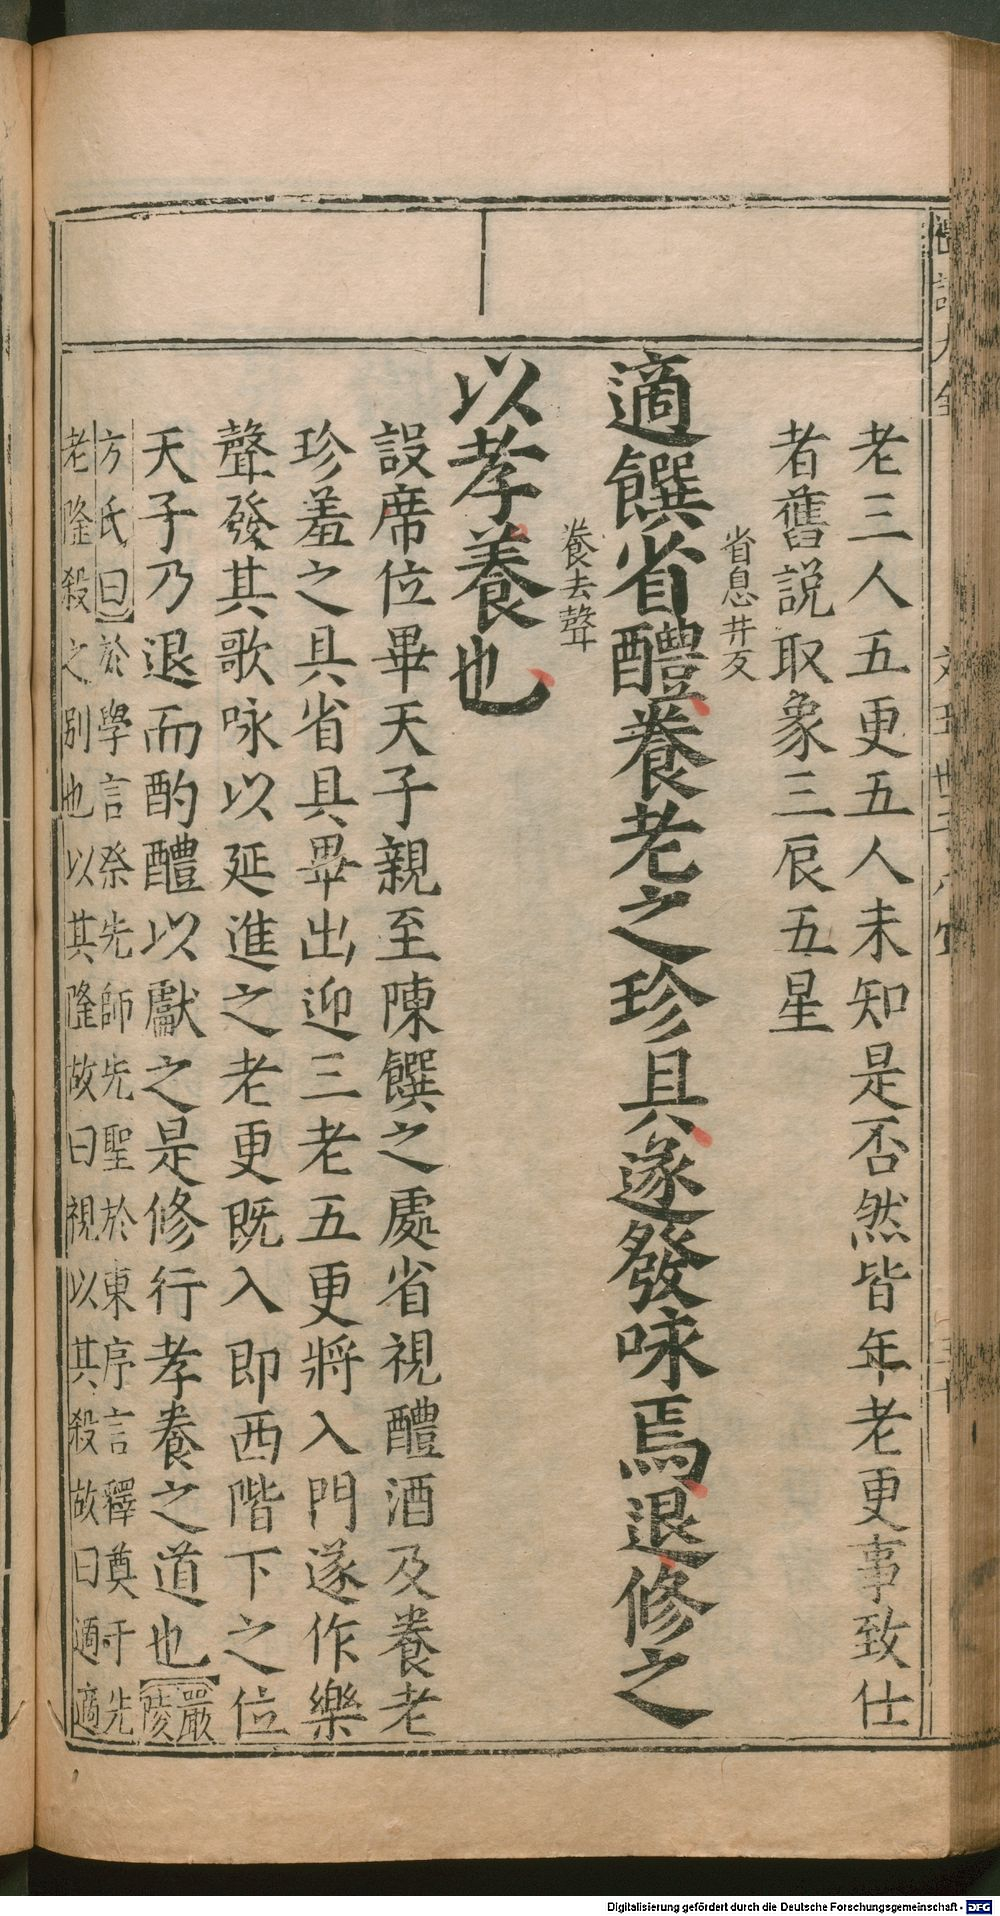 老三人五更五人未知是否然皆年老更事致仕
者舊説取象三辰五星
省息井反
適饌省醴養老之珍具遂發咏焉退修之
養去聲
以孝養也
設席位畢天子親至陳饌之處省視醴酒及養老
珍羞之具省具畢出迎三老五更將入門遂作樂
聲發其歌咏以延進之老更既入即西階下之位
天子乃退而酌醴以獻之是修行孝養之道也
嚴
陵
方氏曰於學言祭先師先聖於東序言釋奠于先
老隆殺之别也以其隆故曰視以其殺故曰適適
Digitalisierung gefördert durch die Deutsche Forschungsgemeinschaft - DFG